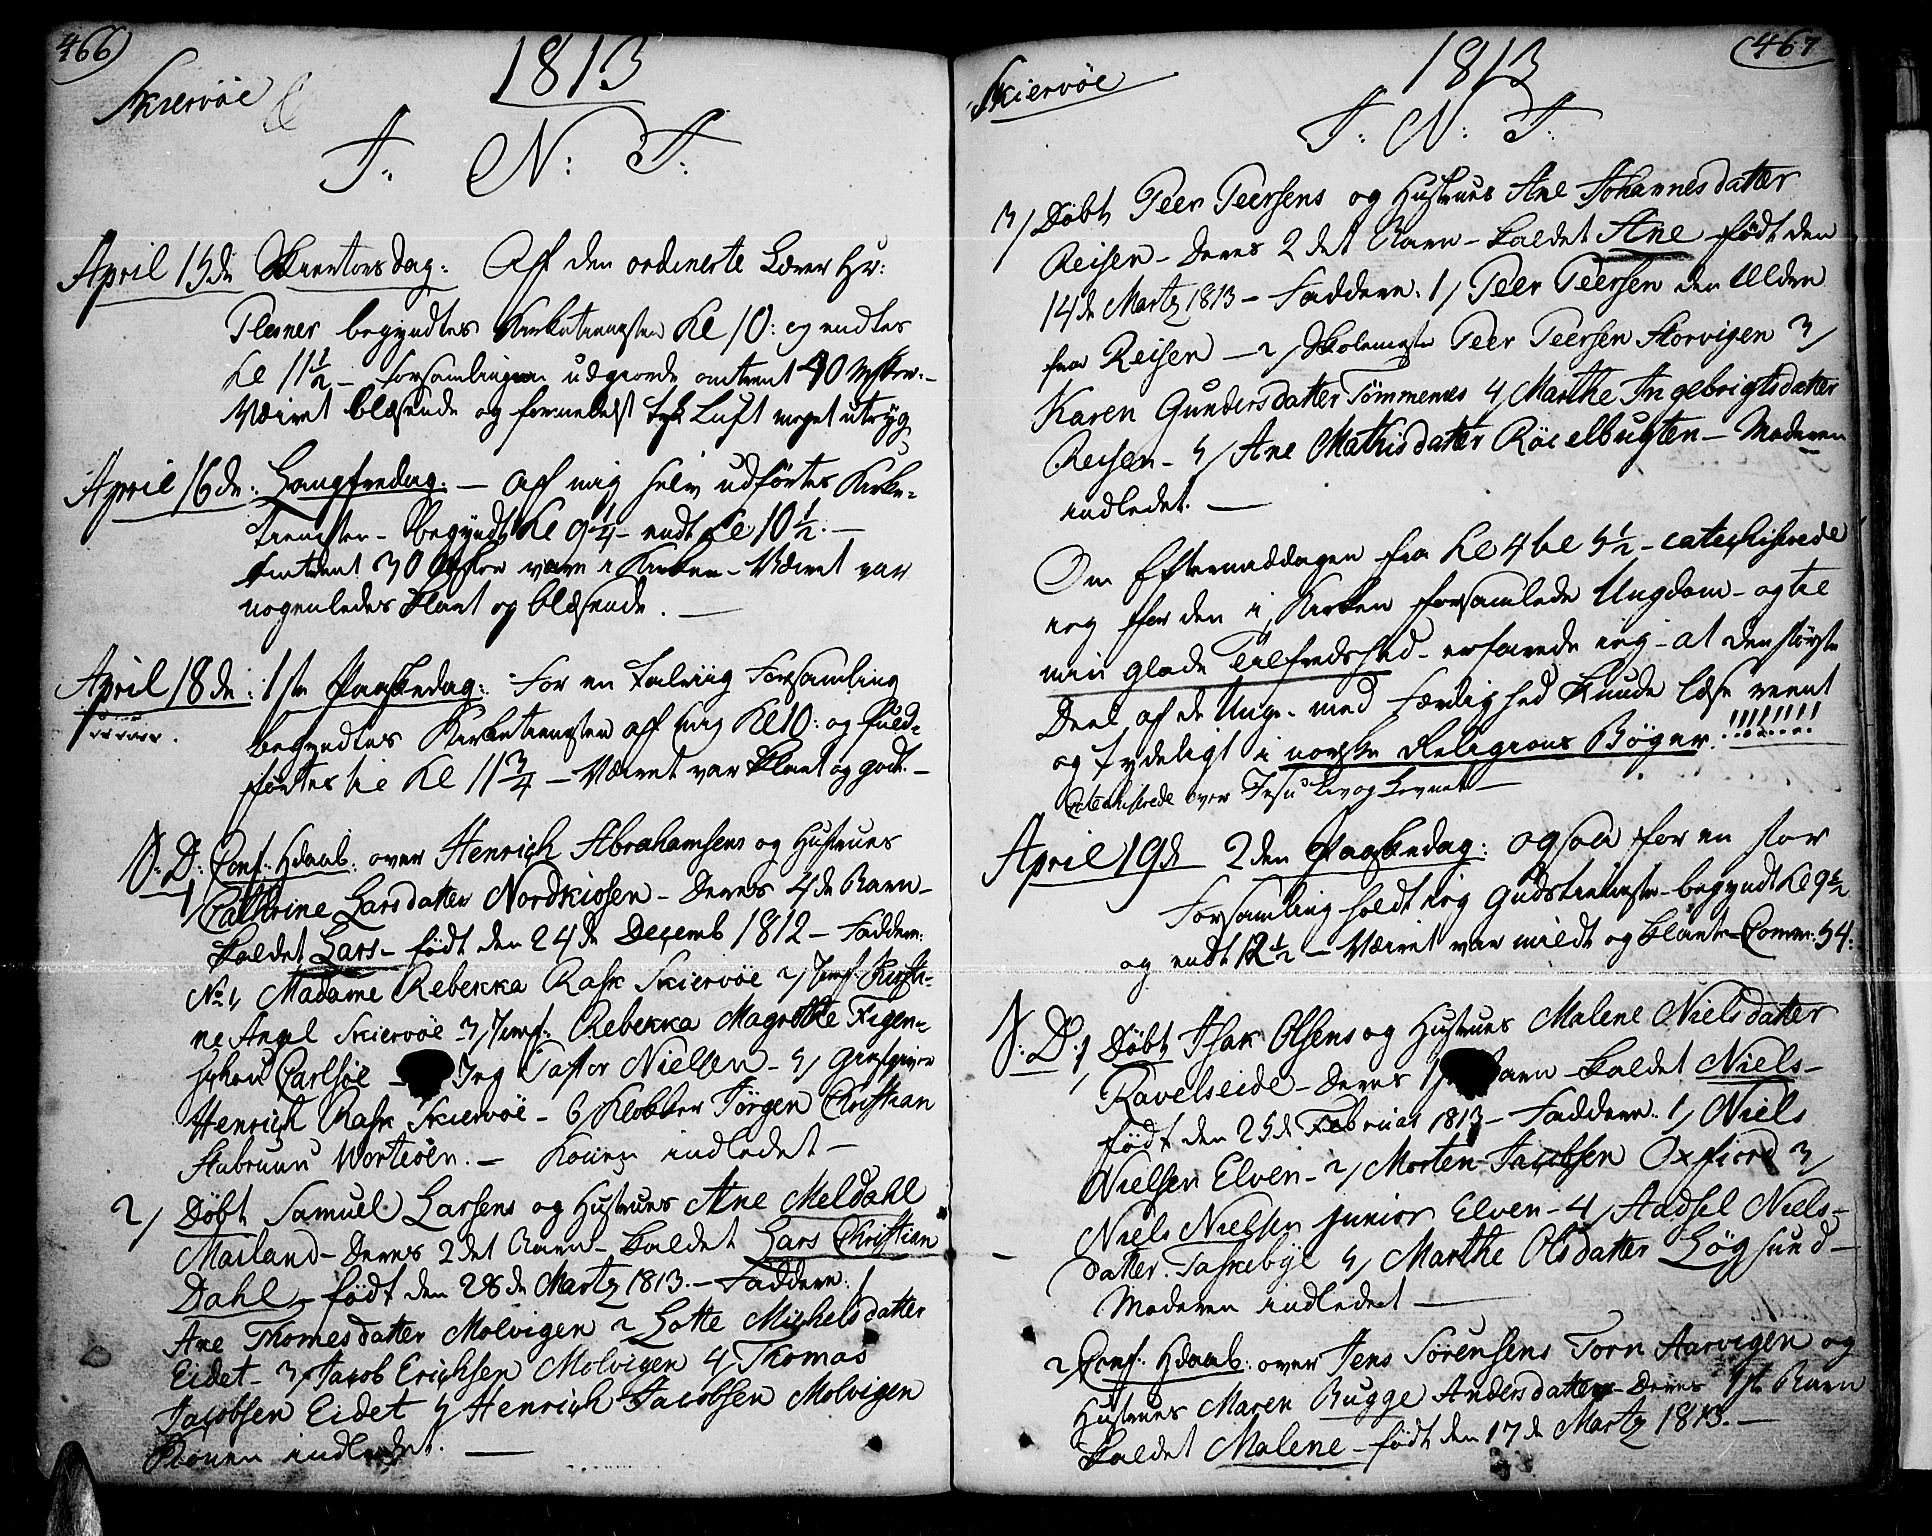 466)
1813
Skiervöe
I: N: I:
April 15de Skiertorsdag: Aff den ordinerte Lærer Hr:
Plesner begyndtes Kirketienesten Kl 10: og endtes
Kl 11½ – Forsamlingen udgiorde omtrent 40 Msker. –
Væiret blæsende og formedelst tyk Luft meget utryg
April 16de: Langfredag. – Aff mig selv udförtes Kirke-
tienesten – begyndt Kl 9¼ – endt Kl 10½. –
Omtrent 30 Msker vare i Kirken – Væiret var
nogenledes klart og blæsende. –
April 18de: 1ste Paaskedag: For en talriig Forsamling
begyndtes Kirketienesten aff mig Kl 10: og fuld-
førtes til Kl 11¾ – Væiret var klart og godt. –
S: D: Conf: Hdaab: over Henrich Abrahamsens og Hustrues
1/ Cathrine Larsdatter Nordkiosen – Deres 4de Barn –
kaldet Lars – født den 24de Decemb 1812 – Faddere:
No 1, Madame Rebekka Rask Skiervöe 2/ Jomf: Kirsti-
ne Angel Skiervöe 3/ Jomf: Rebekka Magrethe Figen-
schou Carlsöe – Jeg Pastor Nielsen – 5/ Giestgiver
Henrich Rask Skiervöe – 6/ Klokker Jörgen Christian
Stabruun Vorteröen. – Konen indledet –
2/ Döbt Samuel Larsens og Hustrues Ane Meldahl
Mailand – Deres 2det Barn – kaldet Lars Christian
Dahl – født den 28de Martz 1813. – Faddere: 1
Ane Thomesdatter Molvigen 2 Lotte Michelsdatter
Eidet – 3/ Jacob Erichsen Molvigen 4/ Thomas
Jacobsen Eidet 5/ Henrich Jacobsen Molvigen
Konen indledet. –
(467
1813
Skiervöe
I: N: I:
3/ Döbt Peer Peersens og Hustrues Ane Johannesdatter
Reisen – Deres 2det Barn – kaldet Ane – født den
14de Martz 1813 – Faddere. 1/ Peer Peersen den Eldre
fra Reisen – 2/ Skolemester Peer Peersen Storvigen 3/
Karen Gundersdatter Tömmernes 4/ Marthe Ingebrigtsdatter
Reisen – 5/ Ane Mathisdatter Röielbugten – Moderen
indledet. –
Om Eftermiddagen fra Kl 4 til 5½ – catechiserede
ieg for den i Kirken forsamlede Ungdom – og til
min glade Tilfredshed – erfarede ieg – at den største
Deel af de Unge – med Færdighed kunde læse reent
og tydeligt i norske Religions Bøger. !!!!!!!!
Catechiserede over Jesu Liv og Levnet –
April 19de 2den Paaskedag: ogsaa for en stor
Forsamling holdt ieg Gudstieneste – begyndt Kl 9½
og endt 12½ – Væiret var mildt og klart – Comm: 54:
S: D: 1/ Döbt Isak Olsens og Hustrues Malene Nielsdatter
Ravelseide – Deres 1ste Barn – kaldet Niels –
født den 25de Februar 1813 – Faddere. 1/ Niels
Nielsen Elven – 2/ Morten Jacobsen Oxfiord 3/
Niels Nielsen junior Elven – 4/ Aadsel Niels-
datter. Taskebye 5/ Marthe Olsdatter Løgsund –
Moderen indledet –
2/ Conf: Hdaab: over Jens Sörensens Torn Aarvigen og
Hustrues Maren Bugge Andersdatter – Deres 1ste Barn
kaldet Malene – født den 17de Martz 1813. –